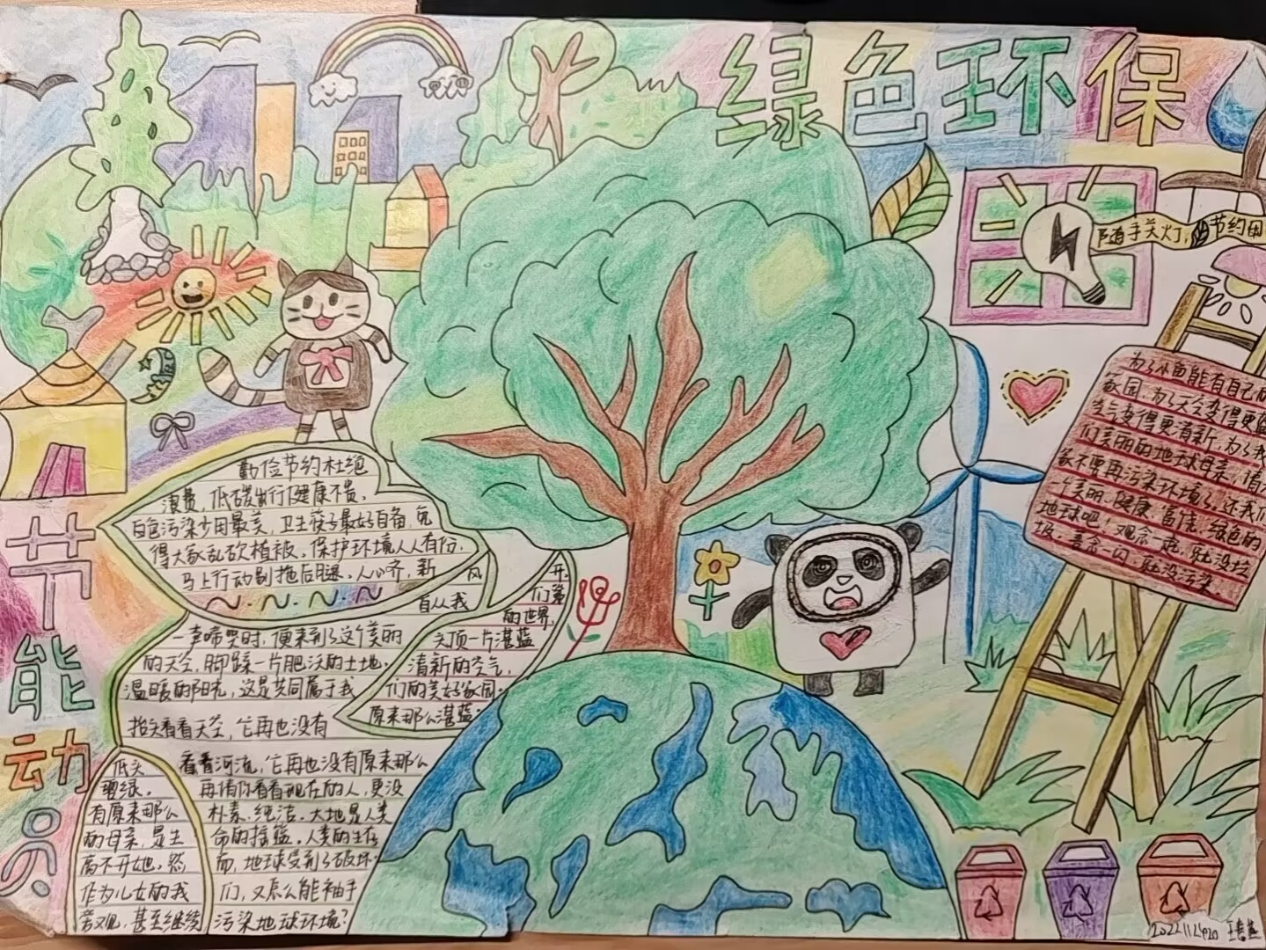 绿色环保
随手关灯,节约用
为了小鱼能有自己的
家园,为了天空变得更蓝
空气变得更清新,为了我
们美丽的地球母亲,请大
家不要再污染环境了,还我们
一个美丽、健康、富佳、绿色的
地球吧!观念一起,就没垃
圾,善念一闪,就没污染。
节
能
动
员
勤俭节约杜绝
浪费,低碳出行健康不贵。
白色污染少用最美,卫生筷子最好自备,免
得大家乱砍植被。保护环境人人有份,
马上行动别拖后腿。人心齐,新
风
开
自从我
们第
的世界,
一声啼哭时,便来到了这个美丽
头顶一片湛蓝
的天空,脚踩一片肥沃的土地,
清新的空气,
温暖的阳光,这是共同属于我
们的美好家园。
抬头看看天空,它再也没有
原来那么湛蓝;
低头
看看河流,它再也没有原来那么
碧绿。
再请你看看现在的人,更没
有原来那么
朴素、纯洁。大地是人类
的母亲,是生
命的摇篮。人类的生存
离不开她,然
而,地球受到了破坏,
作为儿女的我
们,又怎么能袖手
旁观,甚至继续
污染地球环境?